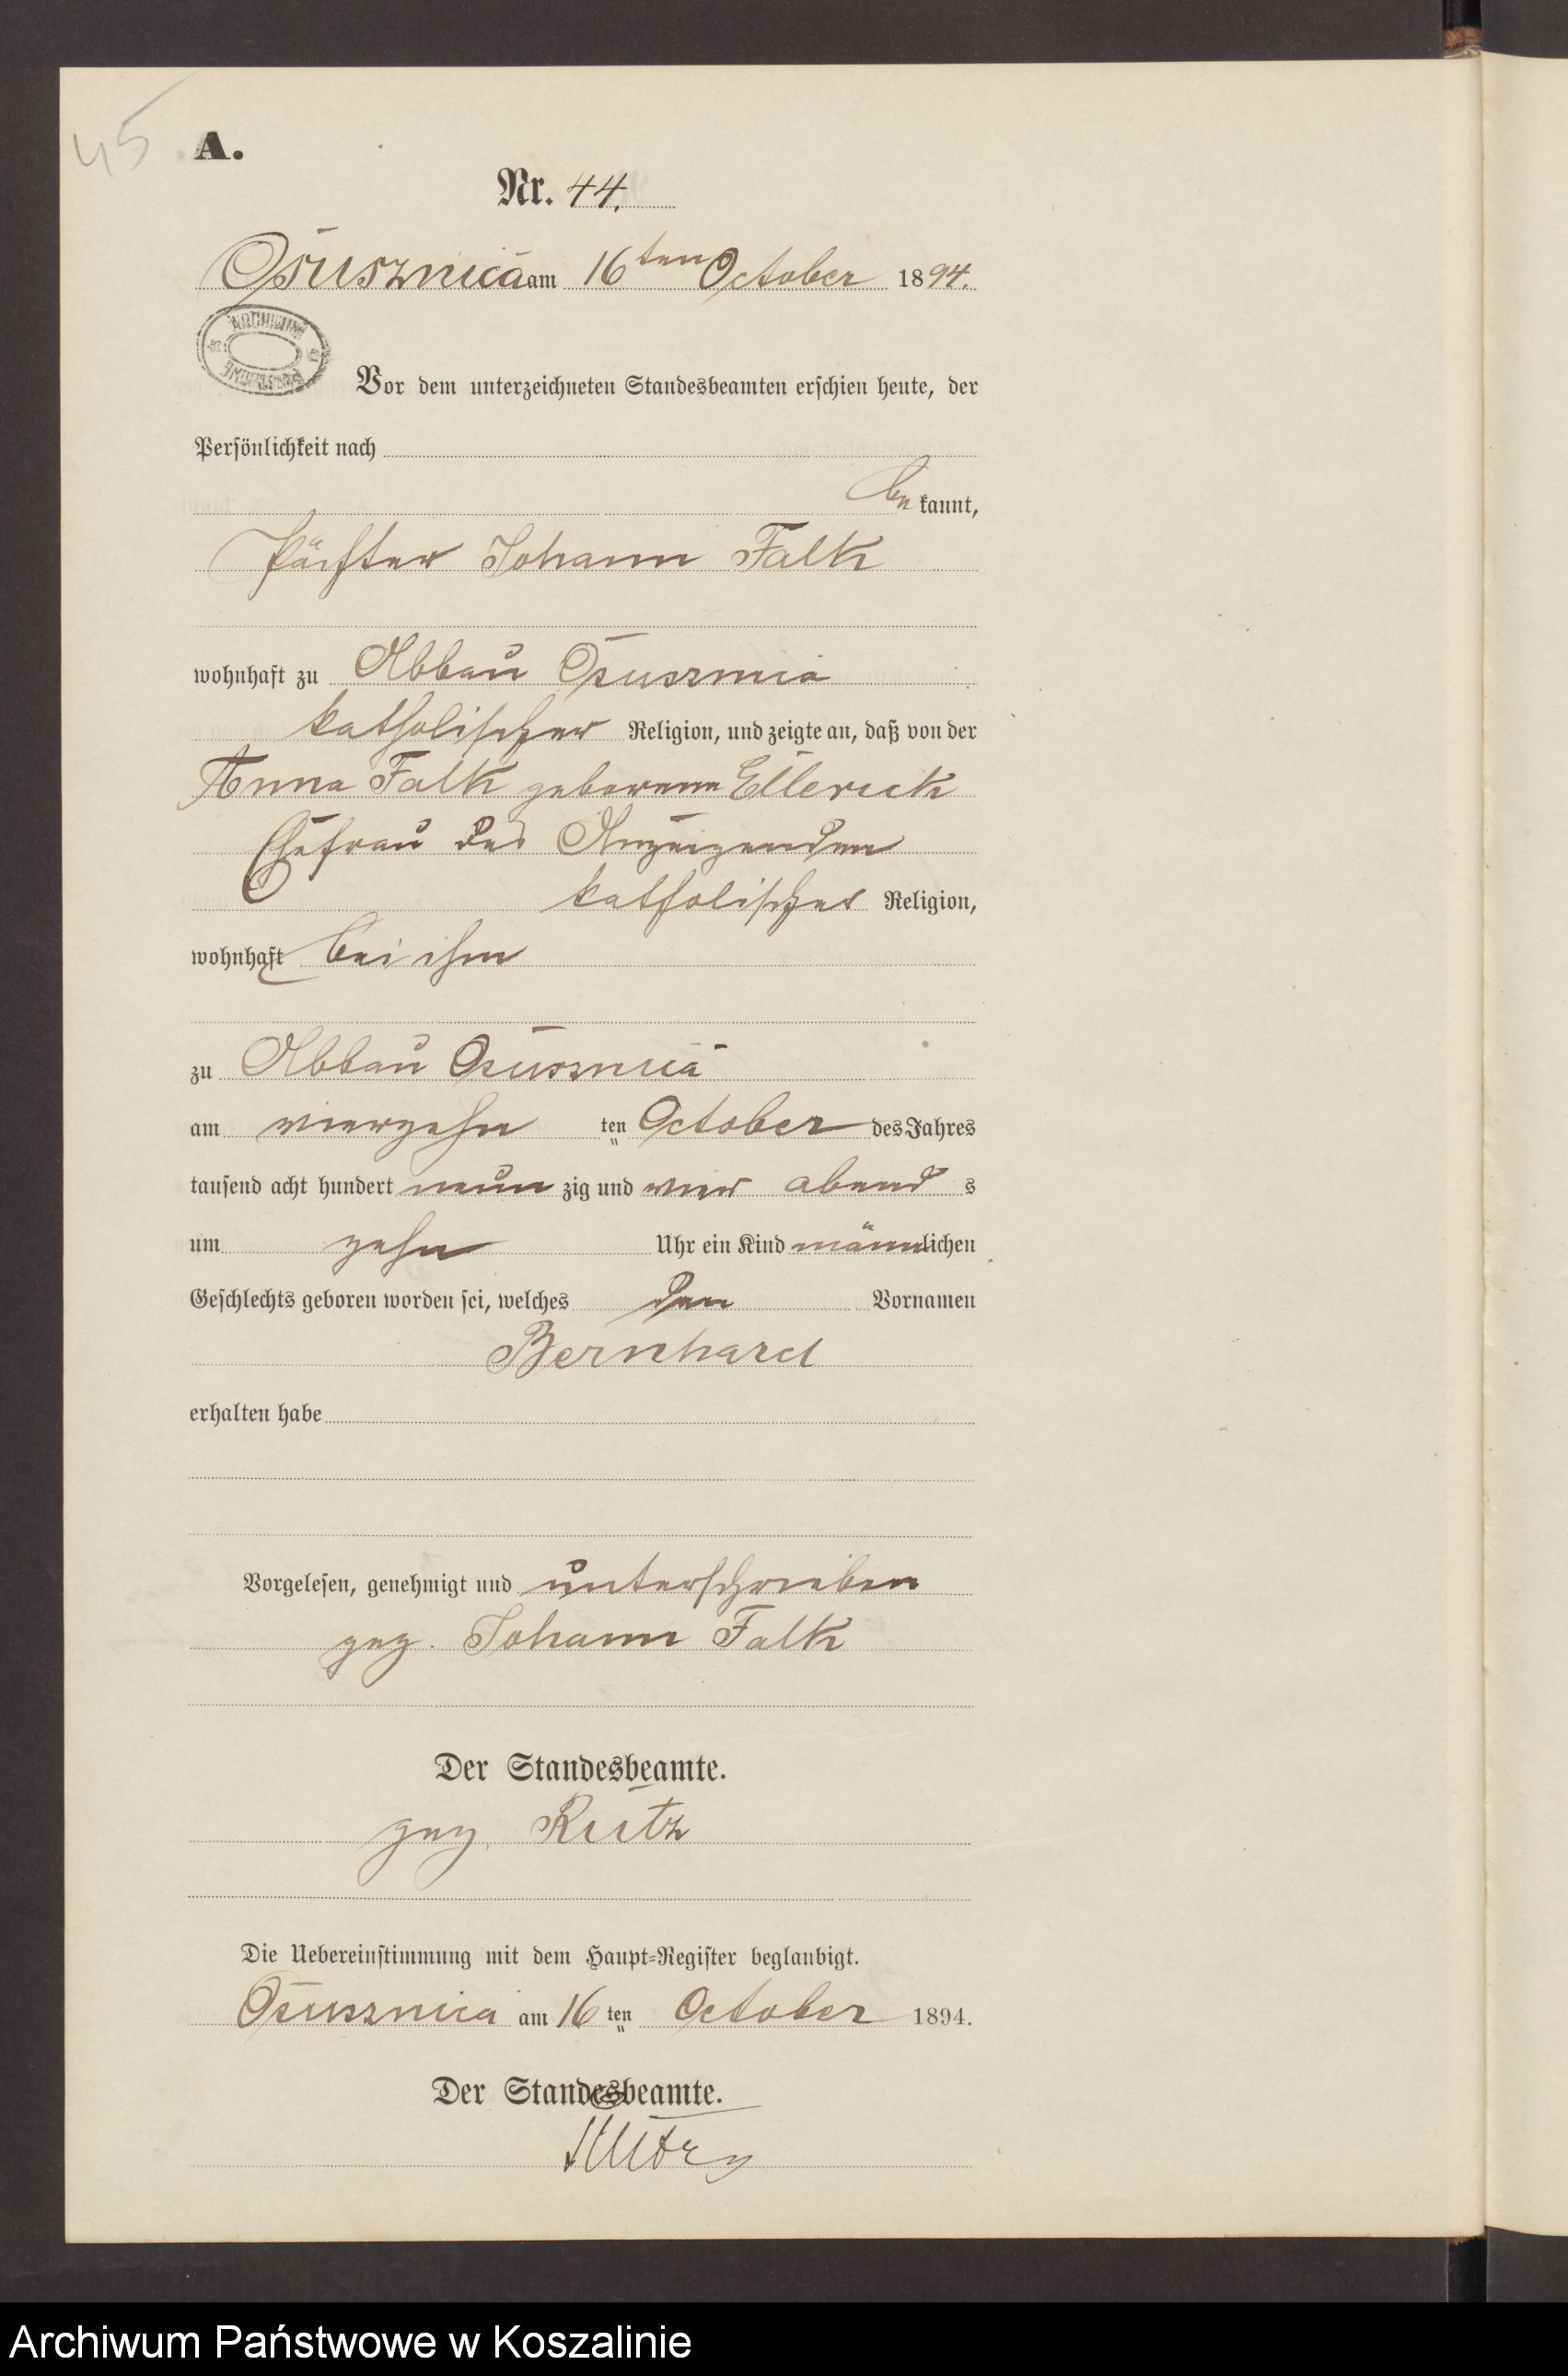 45
A.
Nr. 44.
Osusznica am 16ten October 1894.
ARCHIWUM
Vor dem unterzeichneten Standesbeamten erschien heute, der
Persönlichkeit nach
be kannt,
Pächter Johann Falk
wohnhaft zu Abbau Osusznica
katholischer Religion, und zeigte an, daß von der
Anna Falk geborenen Ellerick
Ehefrau des Anzeigenden
katholischer Religion,
wohnhaft bei ihm
zu Abbau Osusznica
am vierzehn ten October des Jahres
tausend acht hundert neun zig und vier abend s
um zehn Uhr ein Kind männlichen
Geschlechts geboren worden sei, welches den Vornamen
Bernhard
erhalten habe
Vorgelesen, genehmigt und unterschrieben
gez. Johann Falk
Der Standesbeamte.
gez. Rutz
Die Uebereinstimmung mit dem Haupt-Register beglaubigt.
Osusznica am 16 ten October 1894.
Der Standesbeamte.
Archiwum Państwowe w Koszalinie